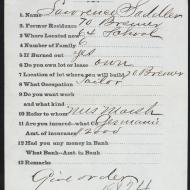 1. Name Lawrence Saddler
2. Former Residence 70 Brewer
3. Where Located now 64 School
4. Number of Family 6
5. If Burned out yes
6. Do you own lot or lease own
7. Location of lot where you will build 70 Brewer
8. What Occupation Tailor
9. Do you want work
and what kind
10. Refer to whom Mrs Marsh
11. Are you insured—what Co. Germania
Amt. of insurance $2000
12. Had you any money in Bank
What Bank—Amt. in Bank
13 Remarks
Give order